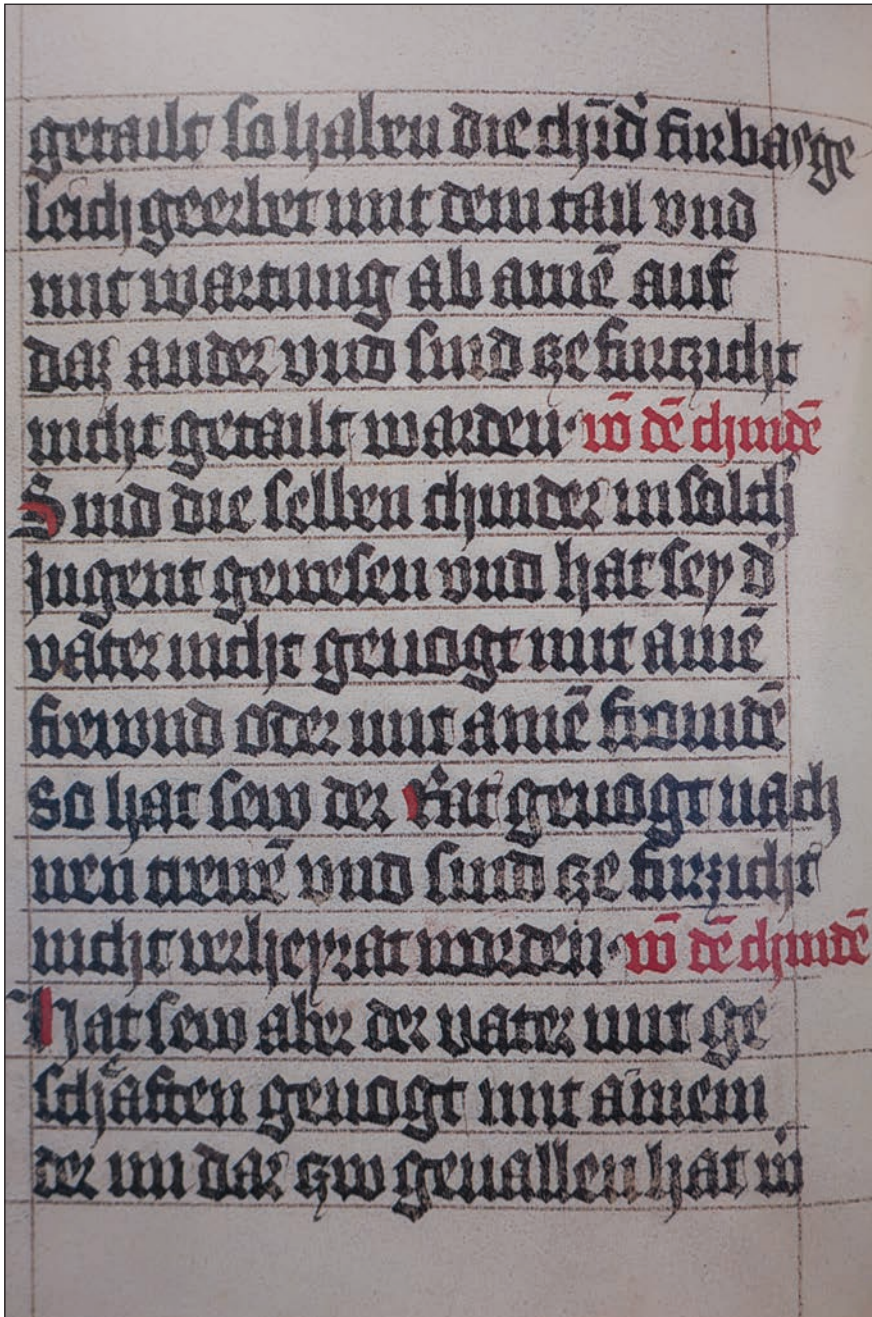 getailt so haben die chīd' furbas ge
leich geerbet mit dem tail vnd
mit wartung ab ainē auf
daz ander vnd sind tze furtzicht
nicht getailt warden · vō dē chindē
Sind die selben chinder in solch
Jugent gewesen vnd hat sey d'
vater nicht geuogt mit ainē
frewnd oder mit ainē fromdē
so hat sew der Rat geuogt nach
iren trewē vnd sind tze furzicht
nicht verheyrat worden · vō dē chindē
Hat sew aber der vater mit ge
schäften geuogt mit ainem
der im dar zw geuallen hat